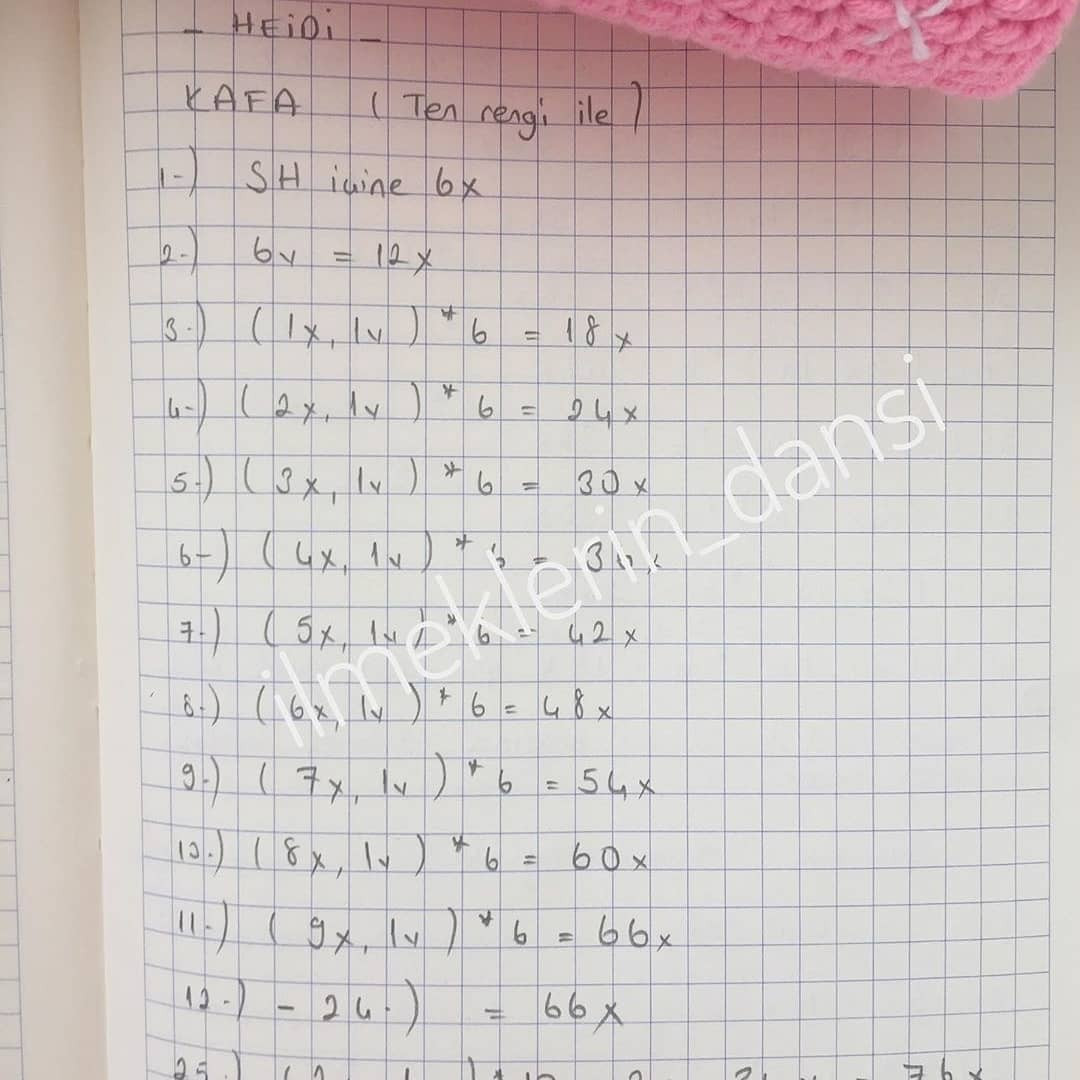 - HEİDİ -
KAFA ( Ten rengi ile )
1-) SH içine 6x
2-) 6v = 12x
3-) ( 1x, 1v ) * 6 = 18x
4-) ( 2x, 1v ) * 6 = 24x
5-) ( 3x, 1v ) * 6 = 30x
6-) ( 4x, 1v ) * 6 = 36x
7-) ( 5x, 1v ) * 6 = 42x
8-) ( 6x, 1v ) * 6 = 48x
9-) ( 7x, 1v ) * 6 = 54x
10-) ( 8x, 1v ) * 6 = 60x
11-) ( 9x, 1v ) * 6 = 66x
12-) - 24-) = 66x
25-)
ilmeklerin_dansi